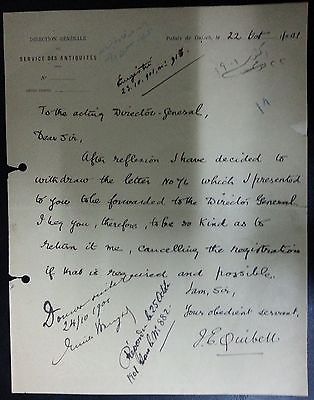 DIRECTION GÉNÉRALE
DU
SERVICE DES ANTIQUITÉS
Palais de Guizeh, le 22 Oct 1901
N°
Enregistré
٢٢ اكتوبر ١٩٠١
To the acting Director-General,
Dear Sir,
After reflexion I have decided to
withdraw the letter No 76 which I presented
to you to be forwarded to the Director General
I beg you, therefore, to be so kind as to
return it me, cancelling the registration
if that is required and possible.
I am, Sir,
Your obedient servant,
J. E. Quibell
Donné suite
24/10 1901
Emile Brugsch
Répondu le 25 Octobre
1901 sous le N° 882.